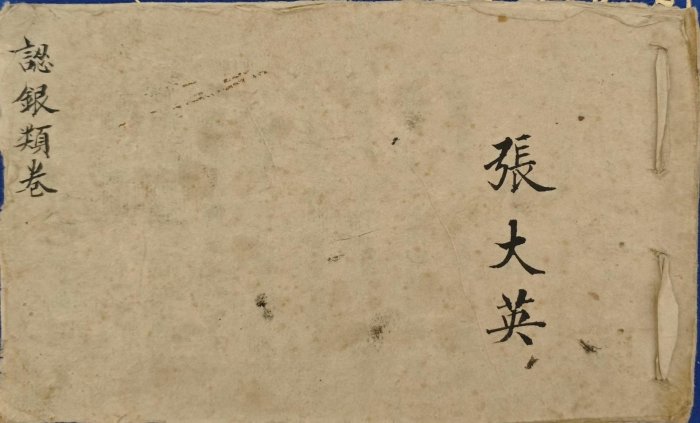 張大英
認銀類卷